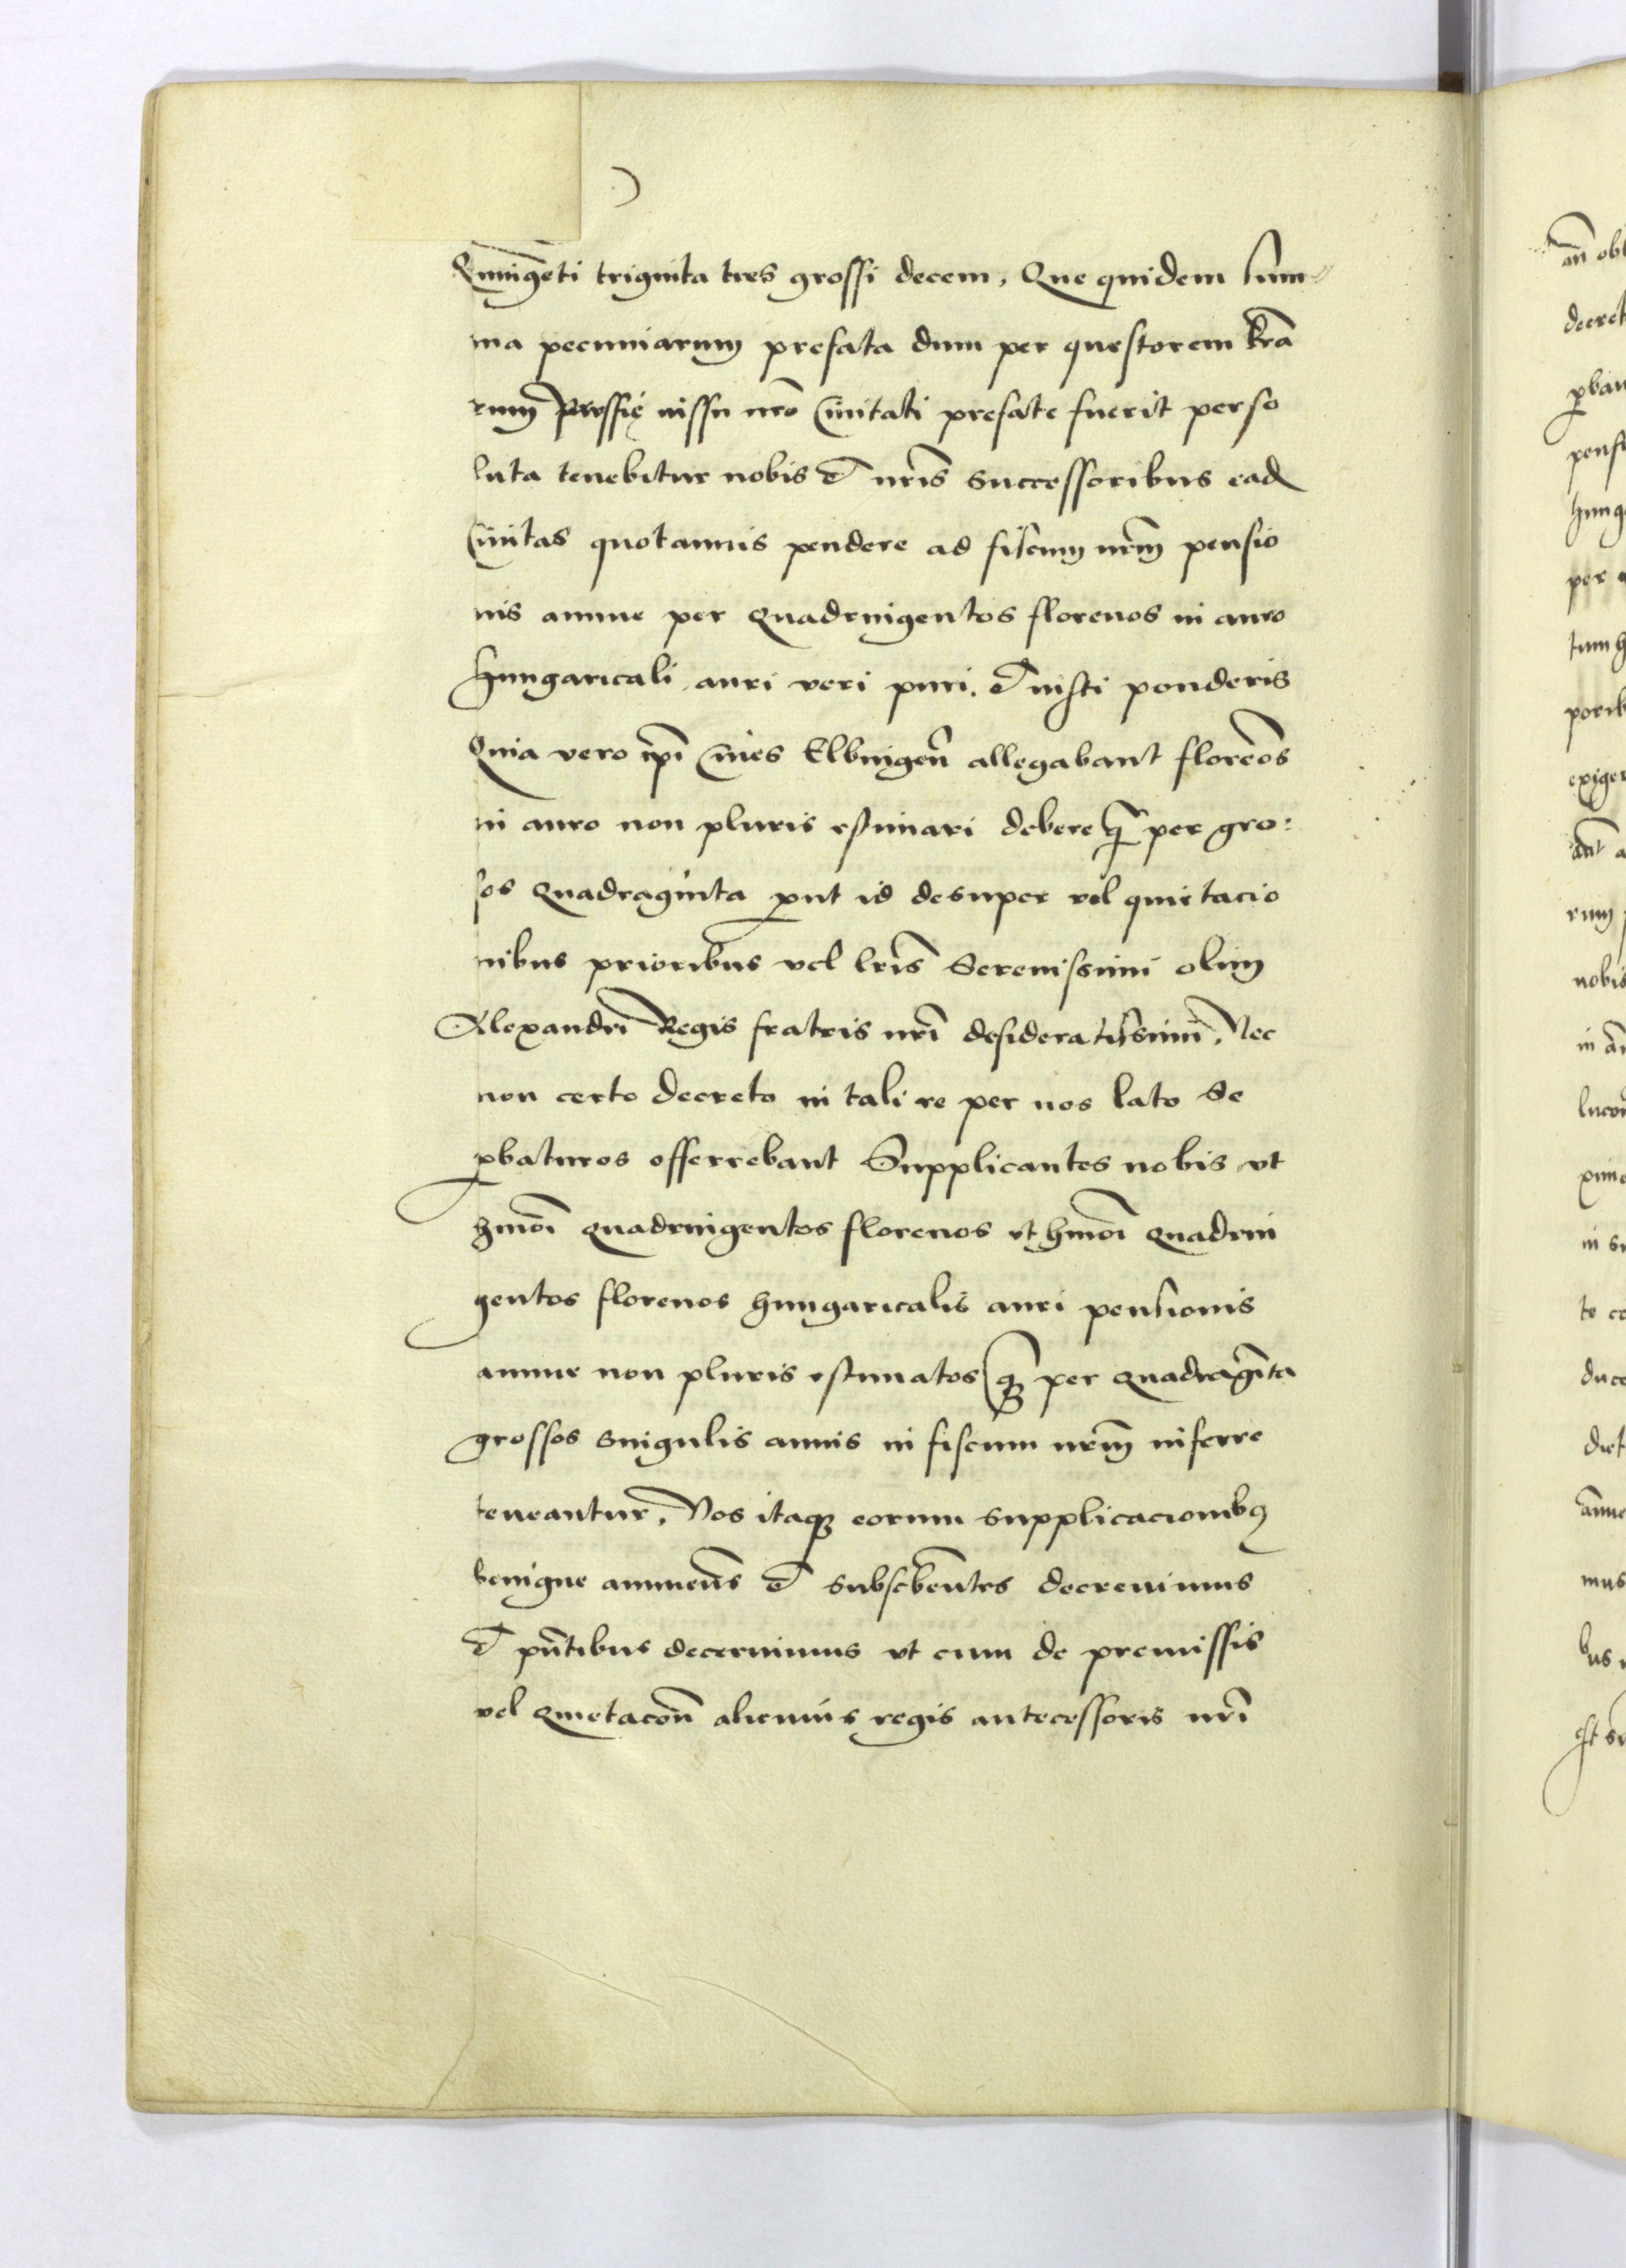 Quingēti triginta tres grossi decem, Que quidem sum-
ma pecuniarum prefata dum per questorem t̄rā
rum Prussię iussu nr̄o Ciuitati prefate fuerit perso
luta tenebitur nobis et nr̄is successoribus ead
Ciuitas quotannis pendere ad fiscum nr̄m pensio
nis annue per Quadringentos florenos in auro
Hungaricali, auri veri puri, et iusti ponderis
Quia vero ip̄i Ciues Elbingen̄ allegabant floreōs
in auro non pluris estimari debere q̄ per gro:
sos Quadraginta ꝓut id desuper vel quietacio
nibus prioribus vel lr̄is Serenissimi olim
Alexandri Regis fratris nr̄i desideratissimi, Nec
non certo decreto in tali re per nos lato se
ꝓbaturos offerrebant Supplicantes nobis vt
hmōi quadringentos florenos vt hmōi quadrin
gentos florenos hungaricalis auri pensionis
annue non pluris estimatos q̄ꝫ per quadragīta
grossos singulis annis in fiscum nr̄m inferre
teneantur, Nos itaqꝫ eorum supplicacionibꝰ
benigne annuen̄s et subscbēntes decreuimus
et pn̄tibus decernimus vt cum de premissis
vel Quietacōn̄ alicuius regis antecessoris nr̄i